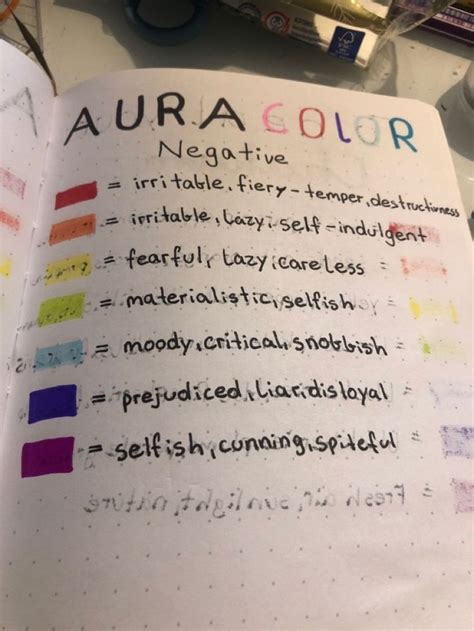 AURA COLOR
Negative
= irritable, fiery-temper, destructivness
= irritable, Lazy, self-indulgent
= fearful, Lazy, careless
= materialistic, selfish
= moody, critical, snobbish
= prejudiced, Liar, disloyal
= selfish, cunning, spiteful
= Fresh air, sunlight, nature